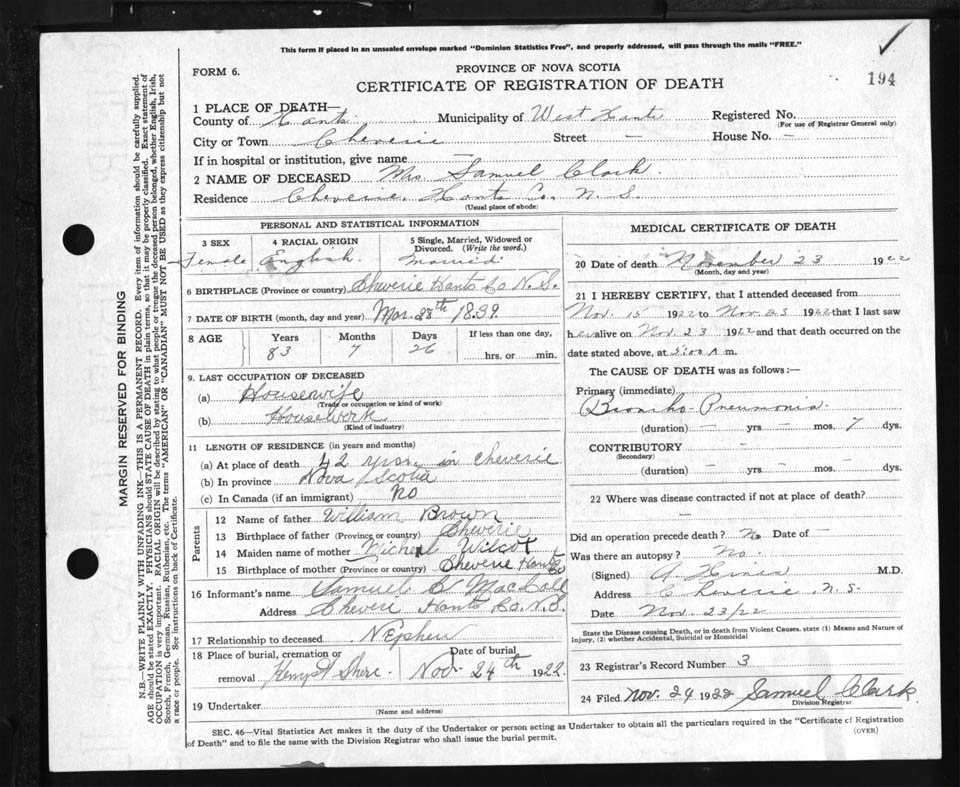 This form if placed in an unsealed envelope marked "Dominion Statistics Free", and properly addressed, will pass through the mails "FREE."
FORM 6.
PROVINCE OF NOVA SCOTIA
194
CERTIFICATE OF REGISTRATION OF DEATH
1 PLACE OF DEATH—
County of Hants Municipality of West Hants Registered No.
(For use of Registrar General only)
City or Town Cheverie Street — House No. —
If in hospital or institution, give name —
2 NAME OF DECEASED Mrs. Samuel Clark.
Residence Cheverie, Hants Co. N. S.
(Usual place of abode)
PERSONAL AND STATISTICAL INFORMATION
3 SEX 4 RACIAL ORIGIN 5 Single, Married, Widowed or Divorced. (Write the word.)
Female English. Married
6 BIRTHPLACE (Province or country) Cheverie Hants Co N. S.
7 DATE OF BIRTH (month, day and year) Mar. 28th 1839
8 AGE Years Months Days If less than one day,
83 7 26 hrs. or min.
9. LAST OCCUPATION OF DECEASED
(a) Housewife
(Trade or occupation or kind of work)
(b) Housework
(Kind of industry)
11 LENGTH OF RESIDENCE (in years and months)
(a) At place of death 42 yrs. in Cheverie
(b) In province Nova Scotia
(c) In Canada (if an immigrant) No
Parents
12 Name of father William Brown
13 Birthplace of father (Province or country) Cheverie
14 Maiden name of mother Micheal Wilcot
15 Birthplace of mother (Province or country) Cheverie Hants Co
16 Informant's name Samuel
Address Cheverie Hants Co. N. S.
17 Relationship to deceased NEphew
18 Place of burial, cremation or removal Kempt Shore Date of burial Nov. 24th 1922
19 Undertaker
(Name and address)
MEDICAL CERTIFICATE OF DEATH
20 Date of death November 23 1922
(Month, day and year)
21 I HEREBY CERTIFY, that I attended deceased from
Nov. 15 1922 to Nov 23 1922 that I last saw
her alive on Nov. 23 1922 and that death occurred on the
date stated above, at 5:00 A m.
The CAUSE OF DEATH was as follows:—
Primary (immediate)
Broncho-Pneumonia.
(duration) — yrs. — mos. 7 dys.
CONTRIBUTORY —
(Secondary)
(duration) — yrs. — mos. — dys.
22 Where was disease contracted if not at place of death?
—
Did an operation precede death? No Date of —
Was there an autopsy? No.
(Signed) M.D.
Address Cheverie, N. S.
Date Nov. 23/22
State the Disease causing Death, or in death from Violent Causes, state (1) Means and Nature of Injury, (2) whether Accidental, Suicidal or Homicidal
23 Registrar's Record Number 3
24 Filed Nov. 24 1922 Samuel Clark
Division Registrar
SEC. 46—Vital Statistics Act makes it the duty of the Undertaker or person acting as Undertaker to obtain all the particulars required in the "Certificate of Registration
of Death" and to file the same with the Division Registrar who shall issue the burial permit.
(OVER)
MARGIN RESERVED FOR BINDING
N.B.—WRITE PLAINLY WITH UNFADING INK—THIS IS A PERMANENT RECORD. Every item of information should be carefully supplied.
AGE should be stated EXACTLY. PHYSICIANS should STATE CAUSE OF DEATH in plain terms, so that it may be properly classified. Exact statement of
OCCUPATION is very important. RACIAL ORIGIN will be described by stating to what people or tongue the deceased person belonged, whether English, Irish,
Scotch, French, German, Russian, Ruthenian, etc. The terms "AMERICAN" or "CANADIAN" MUST NOT BE USED as they express citizenship but not
a race or people. See instructions on back of Certificate.